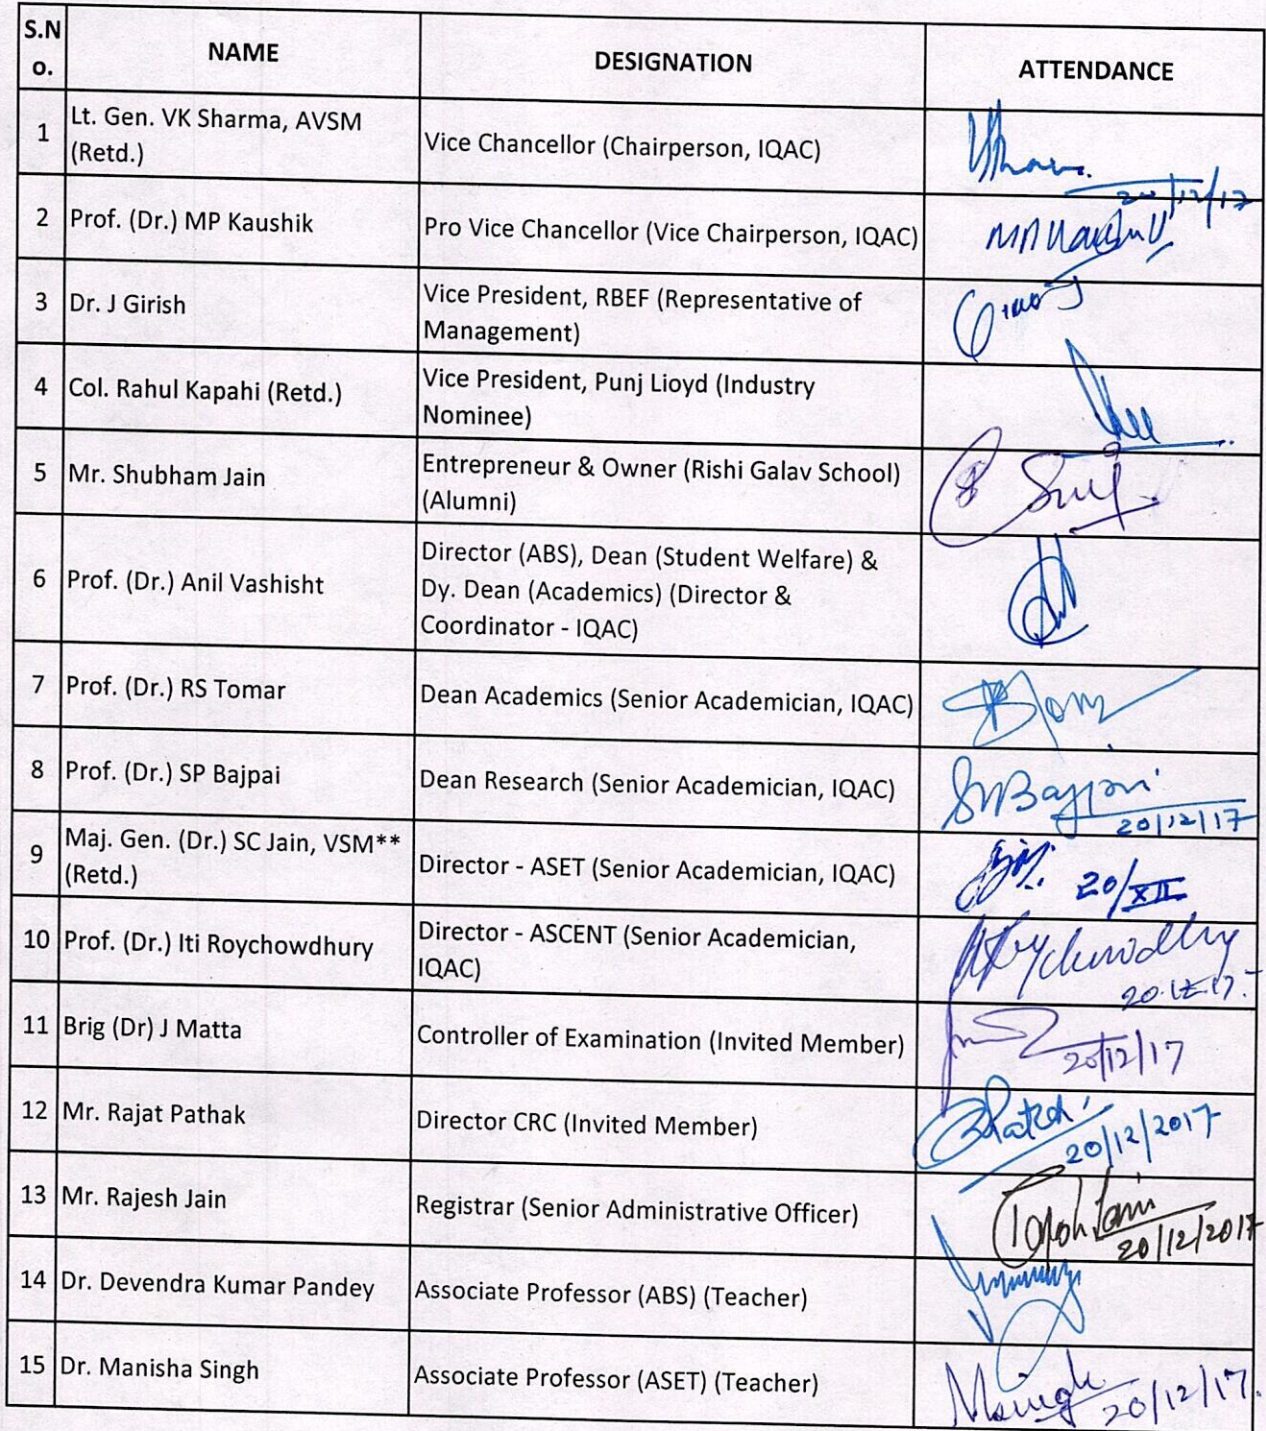 S.N
o.
NAME
DESIGNATION
ATTENDANCE
1
Lt. Gen. VK Sharma, AVSM
(Retd.)
Vice Chancellor (Chairperson, IQAC)
20/12/17
2
Prof. (Dr.) MP Kaushik
Pro Vice Chancellor (Vice Chairperson, IQAC)
3
Dr. J Girish
Vice President, RBEF (Representative of
Management)
4
Col. Rahul Kapahi (Retd.)
Vice President, Punj Lioyd (Industry
Nominee)
5
Mr. Shubham Jain
Entrepreneur & Owner (Rishi Galav School)
(Alumni)
6
Prof. (Dr.) Anil Vashisht
Director (ABS), Dean (Student Welfare) &
Dy. Dean (Academics) (Director &
Coordinator - IQAC)
7
Prof. (Dr.) RS Tomar
Dean Academics (Senior Academician, IQAC)
8
Prof. (Dr.) SP Bajpai
Dean Research (Senior Academician, IQAC)
SPBajpai
20/12/17
9
Maj. Gen. (Dr.) SC Jain, VSM**
(Retd.)
Director - ASET (Senior Academician, IQAC)
20/XII
10
Prof. (Dr.) Iti Roychowdhury
Director - ASCENT (Senior Academician,
IQAC)
Roychowdhry
20.12.17.
11
Brig (Dr) J Matta
Controller of Examination (Invited Member)
20/12/17
12
Mr. Rajat Pathak
Director CRC (Invited Member)
20/12/2017
13
Mr. Rajesh Jain
Registrar (Senior Administrative Officer)
20/12/2017
14
Dr. Devendra Kumar Pandey
Associate Professor (ABS) (Teacher)
15
Dr. Manisha Singh
Associate Professor (ASET) (Teacher)
MSingh
20/12/17.